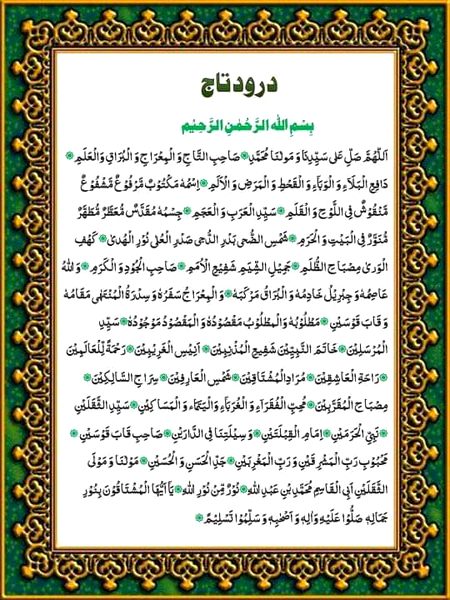 درود تاج
بِسْمِ اللهِ الرَّحْمٰنِ الرَّحِيْمِ
اَللّٰهُمَّ صَلِّ عَلٰى سَيِّدِنَا وَ مَوْلٰنَا مُحَمَّدٍ صَاحِبِ التَّاجِ وَ الْمِعْرَاجِ وَ الْبُرَاقِ وَ الْعَلَمِ
دَافِعِ الْبَلَآءِ وَ الْوَبَآءِ وَ الْقَحْطِ وَ الْمَرَضِ وَ الْاَلَمِ اِسْمُهٗ مَكْتُوْبٌ مَّرْفُوْعٌ مَّشْفُوْعٌ
مَّنْقُوْشٌ فِى اللَّوْحِ وَ الْقَلَمِ سَيِّدِ الْعَرَبِ وَ الْعَجَمِ جِسْمُهٗ مُقَدَّسٌ مُّعَطَّرٌ مُّطَهَّرٌ
مُّنَوَّرٌ فِى الْبَيْتِ وَ الْحَرَمِ شَمْسِ الضُّحٰى بَدْرِ الدُّجٰى صَدْرِ الْعُلٰى نُوْرِ الْهُدٰى كَهْفِ
الْوَرٰى مِصْبَاحِ الظُّلَمِ جَمِيْلِ الشِّيَمِ شَفِيْعِ الْاُمَمِ صَاحِبِ الْجُوْدِ وَ الْكَرَمِ وَ اللهُ
عَاصِمُهٗ وَ جِبْرِيْلُ خَادِمُهٗ وَ الْبُرَاقُ مَرْكَبُهٗ وَ الْمِعْرَاجُ سَفَرُهٗ وَ سِدْرَةُ الْمُنْتَهٰى مَقَامُهٗ
وَ قَابَ قَوْسَيْنِ مَطْلُوْبُهٗ وَ الْمَطْلُوْبُ مَقْصُوْدُهٗ وَ الْمَقْصُوْدُ مَوْجُوْدُهٗ سَيِّدِ
الْمُرْسَلِيْنَ خَاتَمِ النَّبِيِّيْنَ شَفِيْعِ الْمُذْنِبِيْنَ اَنِيْسِ الْغَرِيْبِيْنَ رَحْمَةٍ لِّلْعَالَمِيْنَ
رَاحَةِ الْعَاشِقِيْنَ مُرَادِ الْمُشْتَاقِيْنَ شَمْسِ الْعَارِفِيْنَ سِرَاجِ السَّالِكِيْنَ
مِصْبَاحِ الْمُقَرَّبِيْنَ مُحِبِّ الْفُقَرَآءِ وَ الْغُرَبَآءِ وَ الْيَتَامٰى وَ الْمَسَاكِيْنِ سَيِّدِ الثَّقَلَيْنِ
نَبِيِّ الْحَرَمَيْنِ اِمَامِ الْقِبْلَتَيْنِ وَ سِيْلَتِنَا فِى الدَّارَيْنِ صَاحِبِ قَابَ قَوْسَيْنِ
مَحْبُوْبِ رَبِّ الْمَشْرِقَيْنِ وَ رَبِّ الْمَغْرِبَيْنِ جَدِّ الْحَسَنِ وَ الْحُسَيْنِ مَوْلٰنَا وَ مَوْلَى
الثَّقَلَيْنِ اَبِى الْقَاسِمِ مُحَمَّدِ بْنِ عَبْدِ اللهِ نُوْرٌ مِّنْ نُوْرِ اللهِ يَآ اَيُّهَا الْمُشْتَاقُوْنَ بِنُوْرِ
جَمَالِهٖ صَلُّوْا عَلَيْهِ وَ اٰلِهٖ وَ اَصْحٰبِهٖ وَ سَلِّمُوْا تَسْلِيْمًا